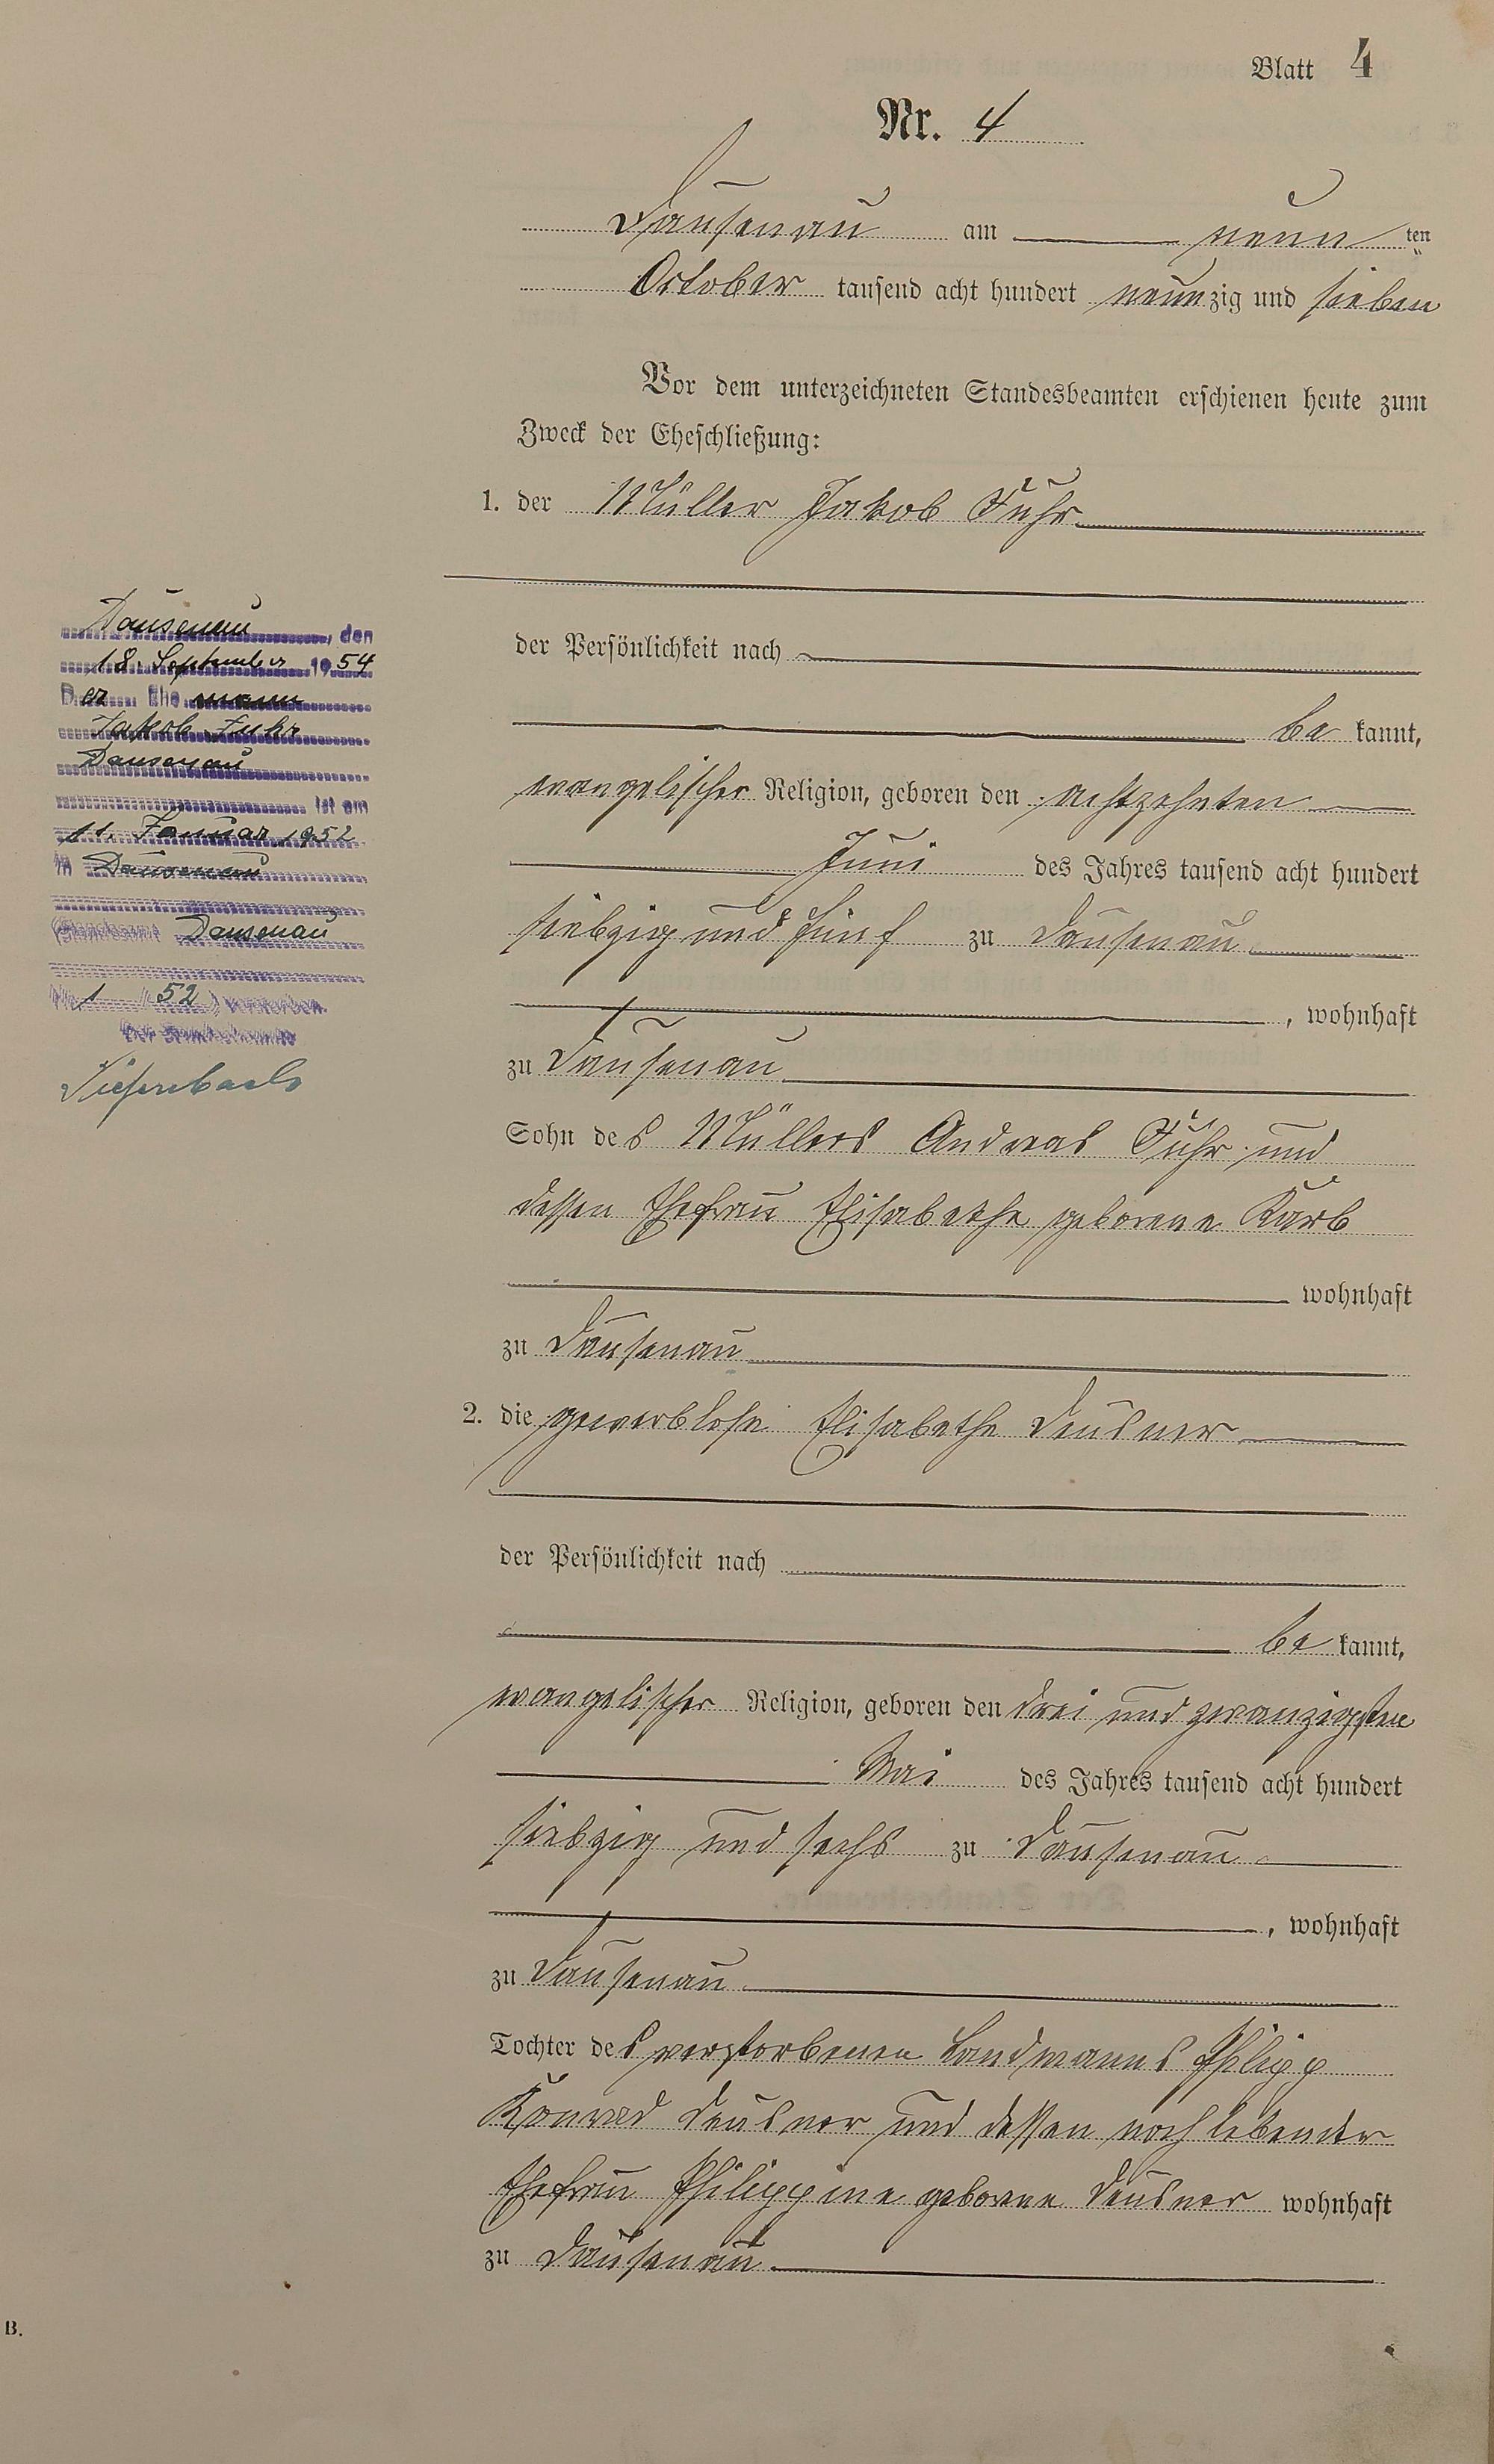 Blatt 4
Nr. 4
Dausenau am neun ten
October tausend acht hundert neunzig und sieben
Vor dem unterzeichneten Standesbeamten erschienen heute zum
Zweck der Eheschließung:
1. der Müller Jakob Fuhr
der Persönlichkeit nach
be kannt,
evangelischer Religion, geboren den achtzehnten
Juni des Jahres tausend acht hundert
siebzig und fünf zu Dausenau
, wohnhaft
zu Dausenau
Sohn des Müllers Andreas Fuhr und
dessen Ehefrau Elisabethe geborene Karb
wohnhaft
zu Dausenau
2. die gewerblose Elisabethe Deusner
der Persönlichkeit nach
be kannt,
evangelischer Religion, geboren den drei und zwanzigsten
Mai des Jahres tausend acht hundert
siebzig und sechs zu Dausenau
, wohnhaft
zu Dausenau
Tochter des verstorbenen Landmanns Philipp
Konrad Deusner und dessen noch lebender
Ehefrau Philippine geborene Deusner wohnhaft
zu Dausenau
Dausenau, den
18. September 1954
Der Ehemann
Jakob Fuhr
Dausenau
ist am
11. Januar 1952
in Dausenau
Dausenau
Nr. 1/52) verstorben.
Der Standesbeamte
B.